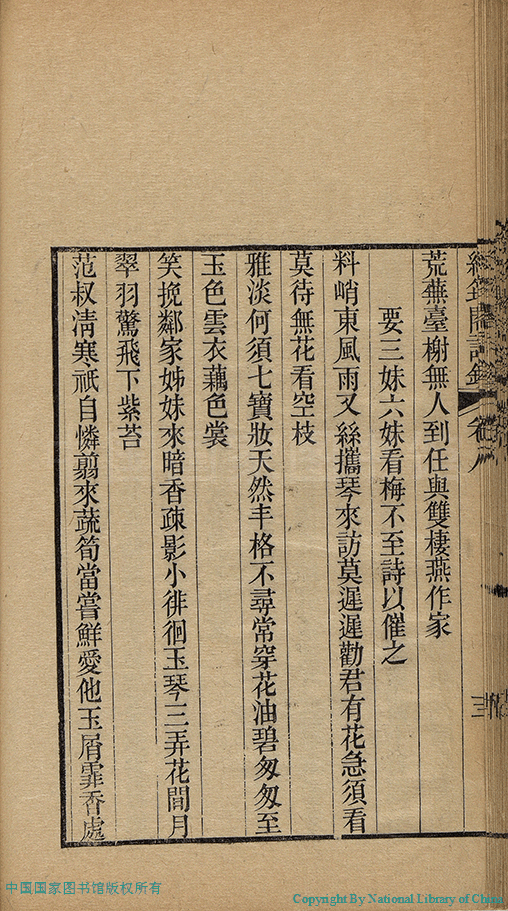 荒蕪臺榭無人到任與雙棲燕作家
要三妹六妹看梅不至詩以催之
料峭東風雨又絲攜琴來訪莫遲遲勸君有花急須看
莫待無花看空枝
雅淡何須七寶妝天然丰格不尋常穿花油碧匆匆至
玉色雲衣藕色裳
笑挽鄰家姊妹來暗香疎影小徘徊玉琴三弄花間月
翠羽驚飛下紫苔
范叔清寒祇自憐翦來蔬筍當嘗鮮愛他玉屑霏香處
三
中国国家图书馆版权所有
Copyright By National Library of China